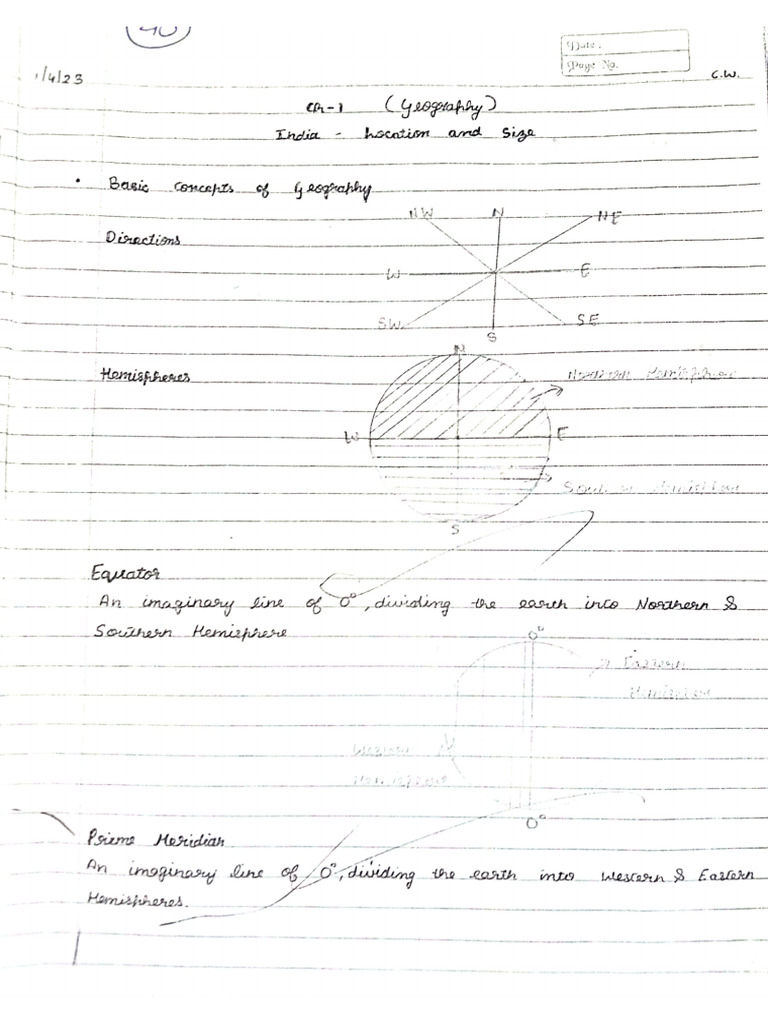 40
1/4/23
Date:
Page No.
C.W.
Ch-1 (Geography)
India - Location and Size
• Basic concepts of Geography
NW N NE
Directions
W E
SW S SE
N
Hemispheres
Northern Hemisphere
W E
Southern Hemisphere
S
Equator
An imaginary line of 0°, dividing the earth into Northern &
Southern Hemisphere
0°
Eastern
Hemisphere
Western
Hemisphere
0°
Prime Meridian
An imaginary line of 0°, dividing the earth into Western & Eastern
Hemispheres.